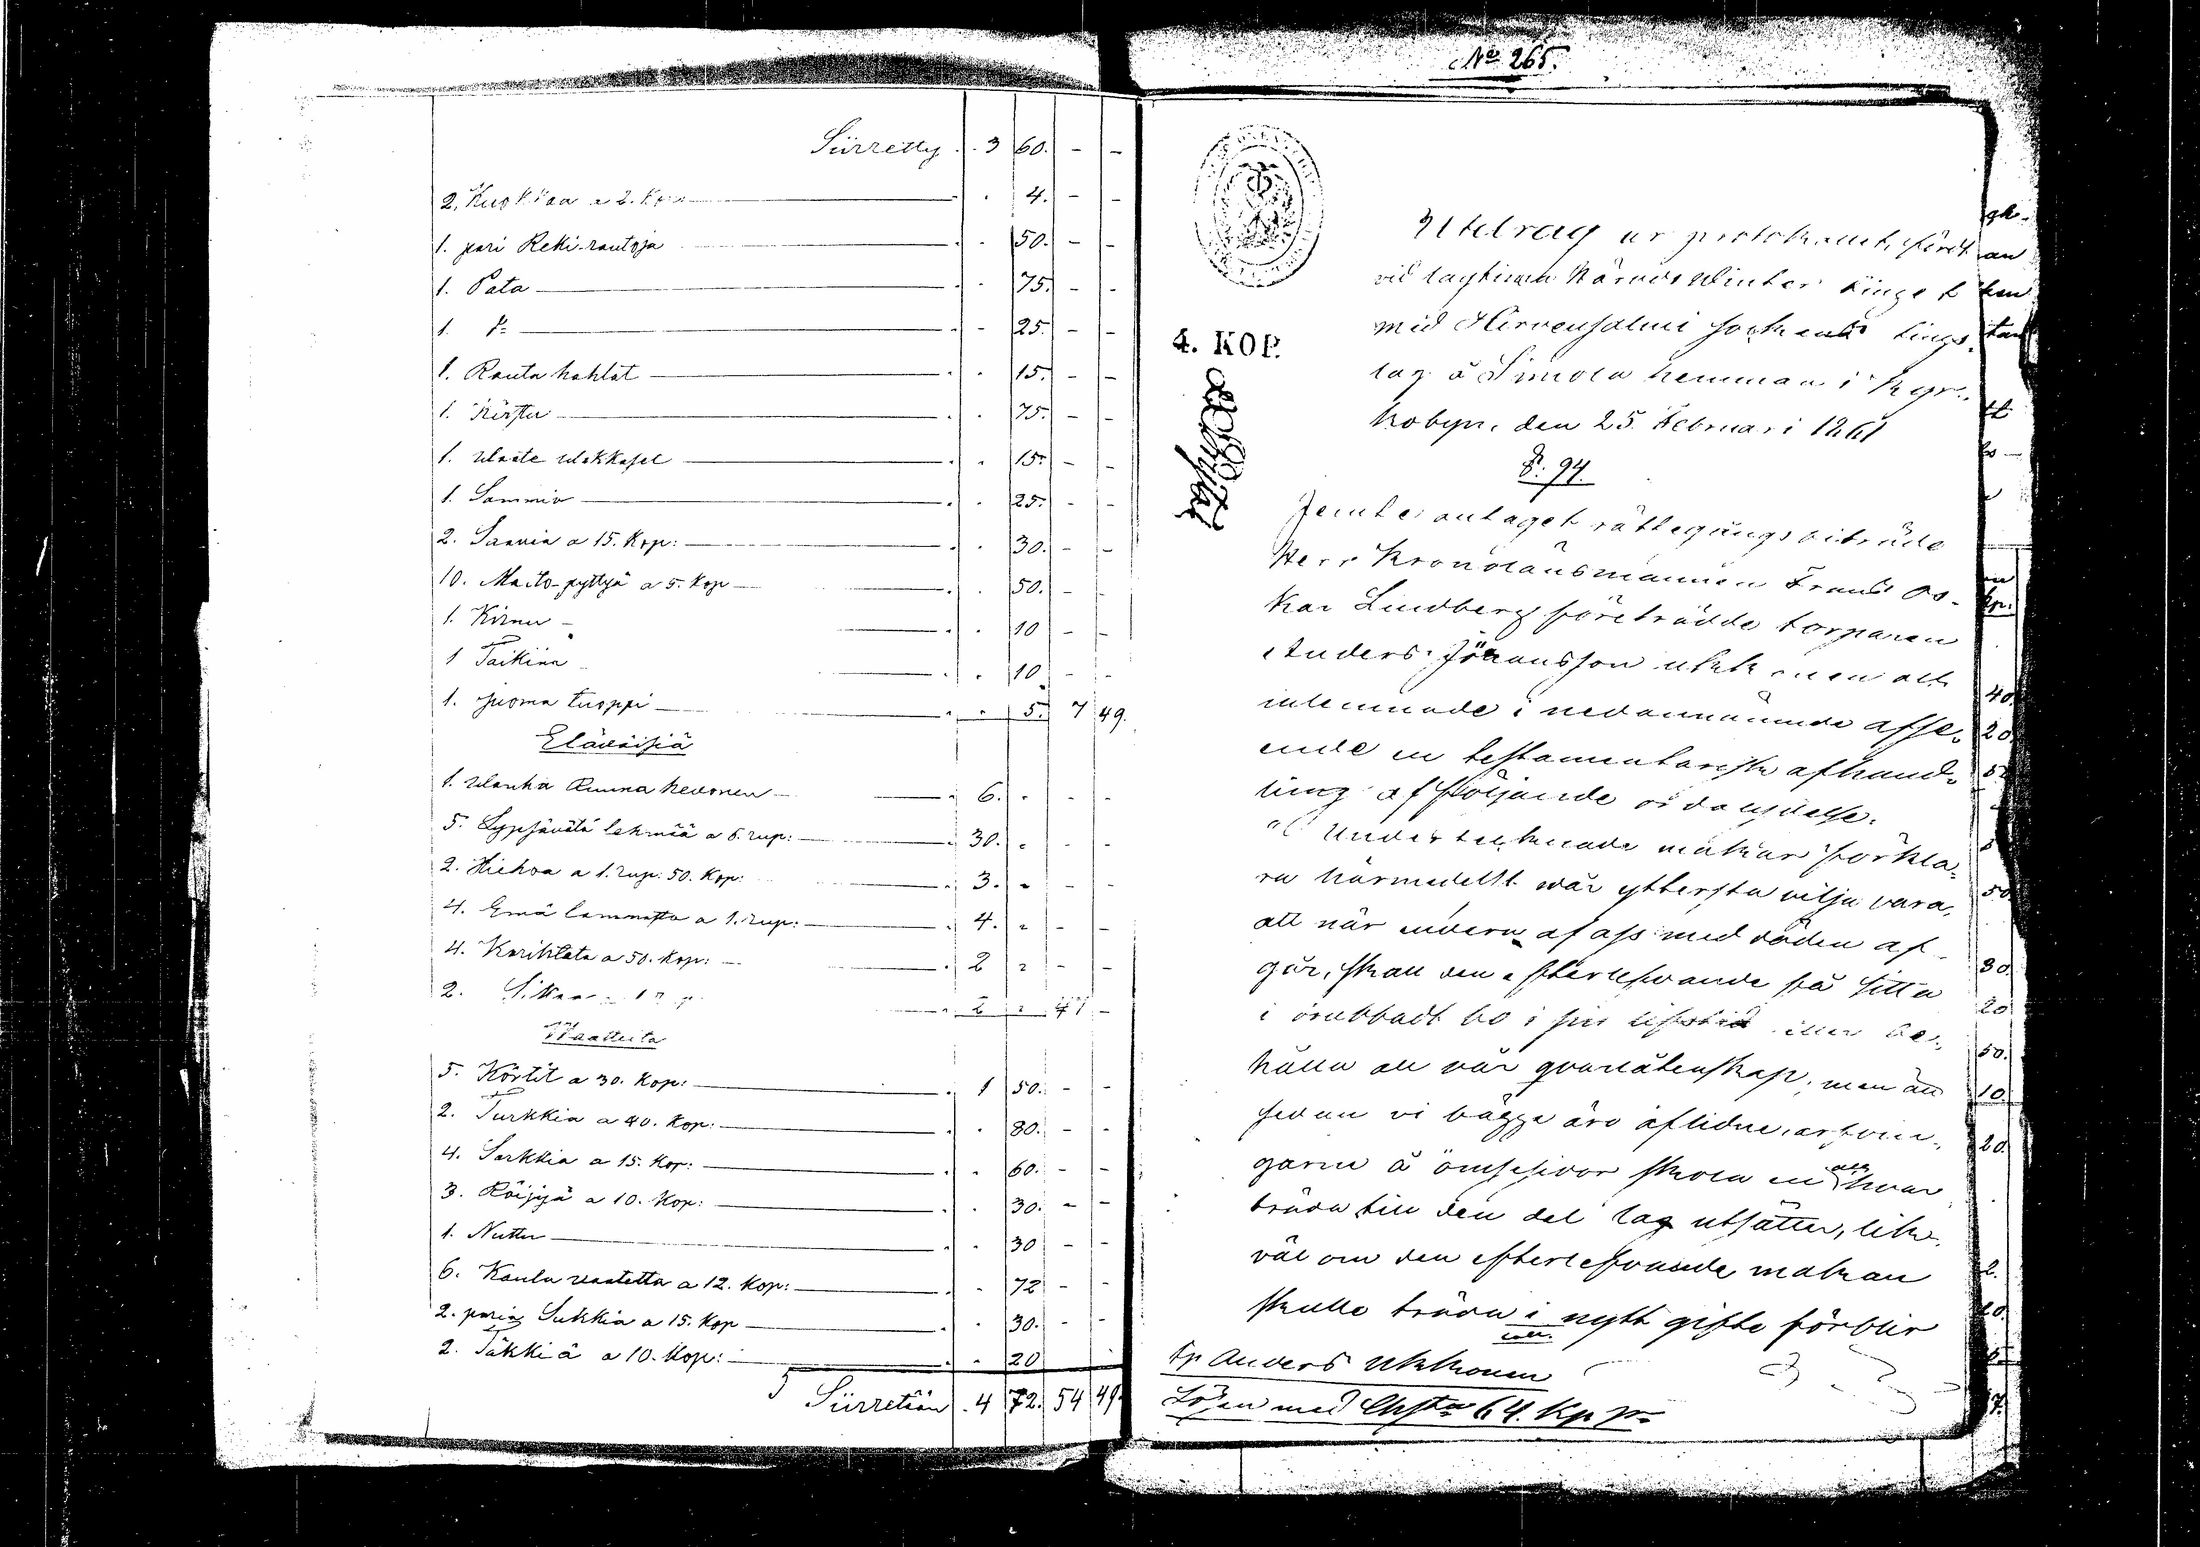 Siirretty . . 3 60. - -
2. Kuokkaa a 2. Kop. . 4. - -
1. pari Reki-rautoja . . 50. - -
1. Pata . . 75. - -
1. . - 25. - -
1. Rauta kahlet . . 15. - -
1. Kirstu . . 75. - -
1. . . 15. - -
1. Sammio . . 25. - -
2. Saavia a 15. Kop: . . 30. - -
10. Maito-pyttyä a 5. Kop . . 50. - -
1. Kirnu . . 10 - -
1 Taikina . . 10 - -
1. juoma tuoppi . . 5. 7 49.
Eläväisiä
1. Wanha Ruuna hevonen . 6. . - -
5. Lypsävätä lehmää a 6. rup: . 30. . - -
2. Hiehoa a 1. rup: 50. Kop: . 3. - - -
4. Emä lammasta a 1. rup: . 4. - - -
4. Karitsata a 50. Kop: . 2 - - -
2. Sikaa . 2 - 47 -
Waatteita
5. Körtit a 30. Kop: . 1 50. - -
2. Turkkia a 40. Kop: . . 80. - -
4. Sarkkia a 15. Kop: . . 60. - -
3. Röijyä a 10. Kop: . . 30. - -
1. Nuttu . . 30 - -
6. Kaulu vaatetta a 12. Kop: . . 72 - -
2. paria Sukkia a 15. Kop . . 30. - -
2. Täkkiä a 10. Kop: . . 20
Siirretään . 4 72. 54 49.
No 265.
4. KOP.
Utdrag ur protokollet, fördt
vid lagtima Härads Winter tinget
med Hirvensalmi sockens tings-
lag å Simola hemman i Kyr-
kobyn, den 25. Februari 1861
§. 94.
Jemte antaget rättegångsbiträde
Herr Kronolänsmannen Frans Os-
kar Lindberg företrädde torparen
Anders Johansson Ukkonen och
inlemnade i nedannämnde afse-
ende en testamentarisk afhand-
ling af följande ordalydelse:
"Undertecknade makar förkla-
ra härmedelst vår yttersta vilja vara,
att när endera af oss med döden af-
går, skall den efterlefvande få sitta
i orubbadt bo i sin lifstid eller be-
hålla all vår qvarlåtenskap, men än
sedan vi bägge äro aflidne, arfvin-
garne å ömsesidor skola en och hvar
träda till den del lag utsätter, lik-
väl om den efterlefvande makan
skulle träda i nytt gifte förblir
Tp Anders Ukkonen
Lösen med Chsta 64. Kp